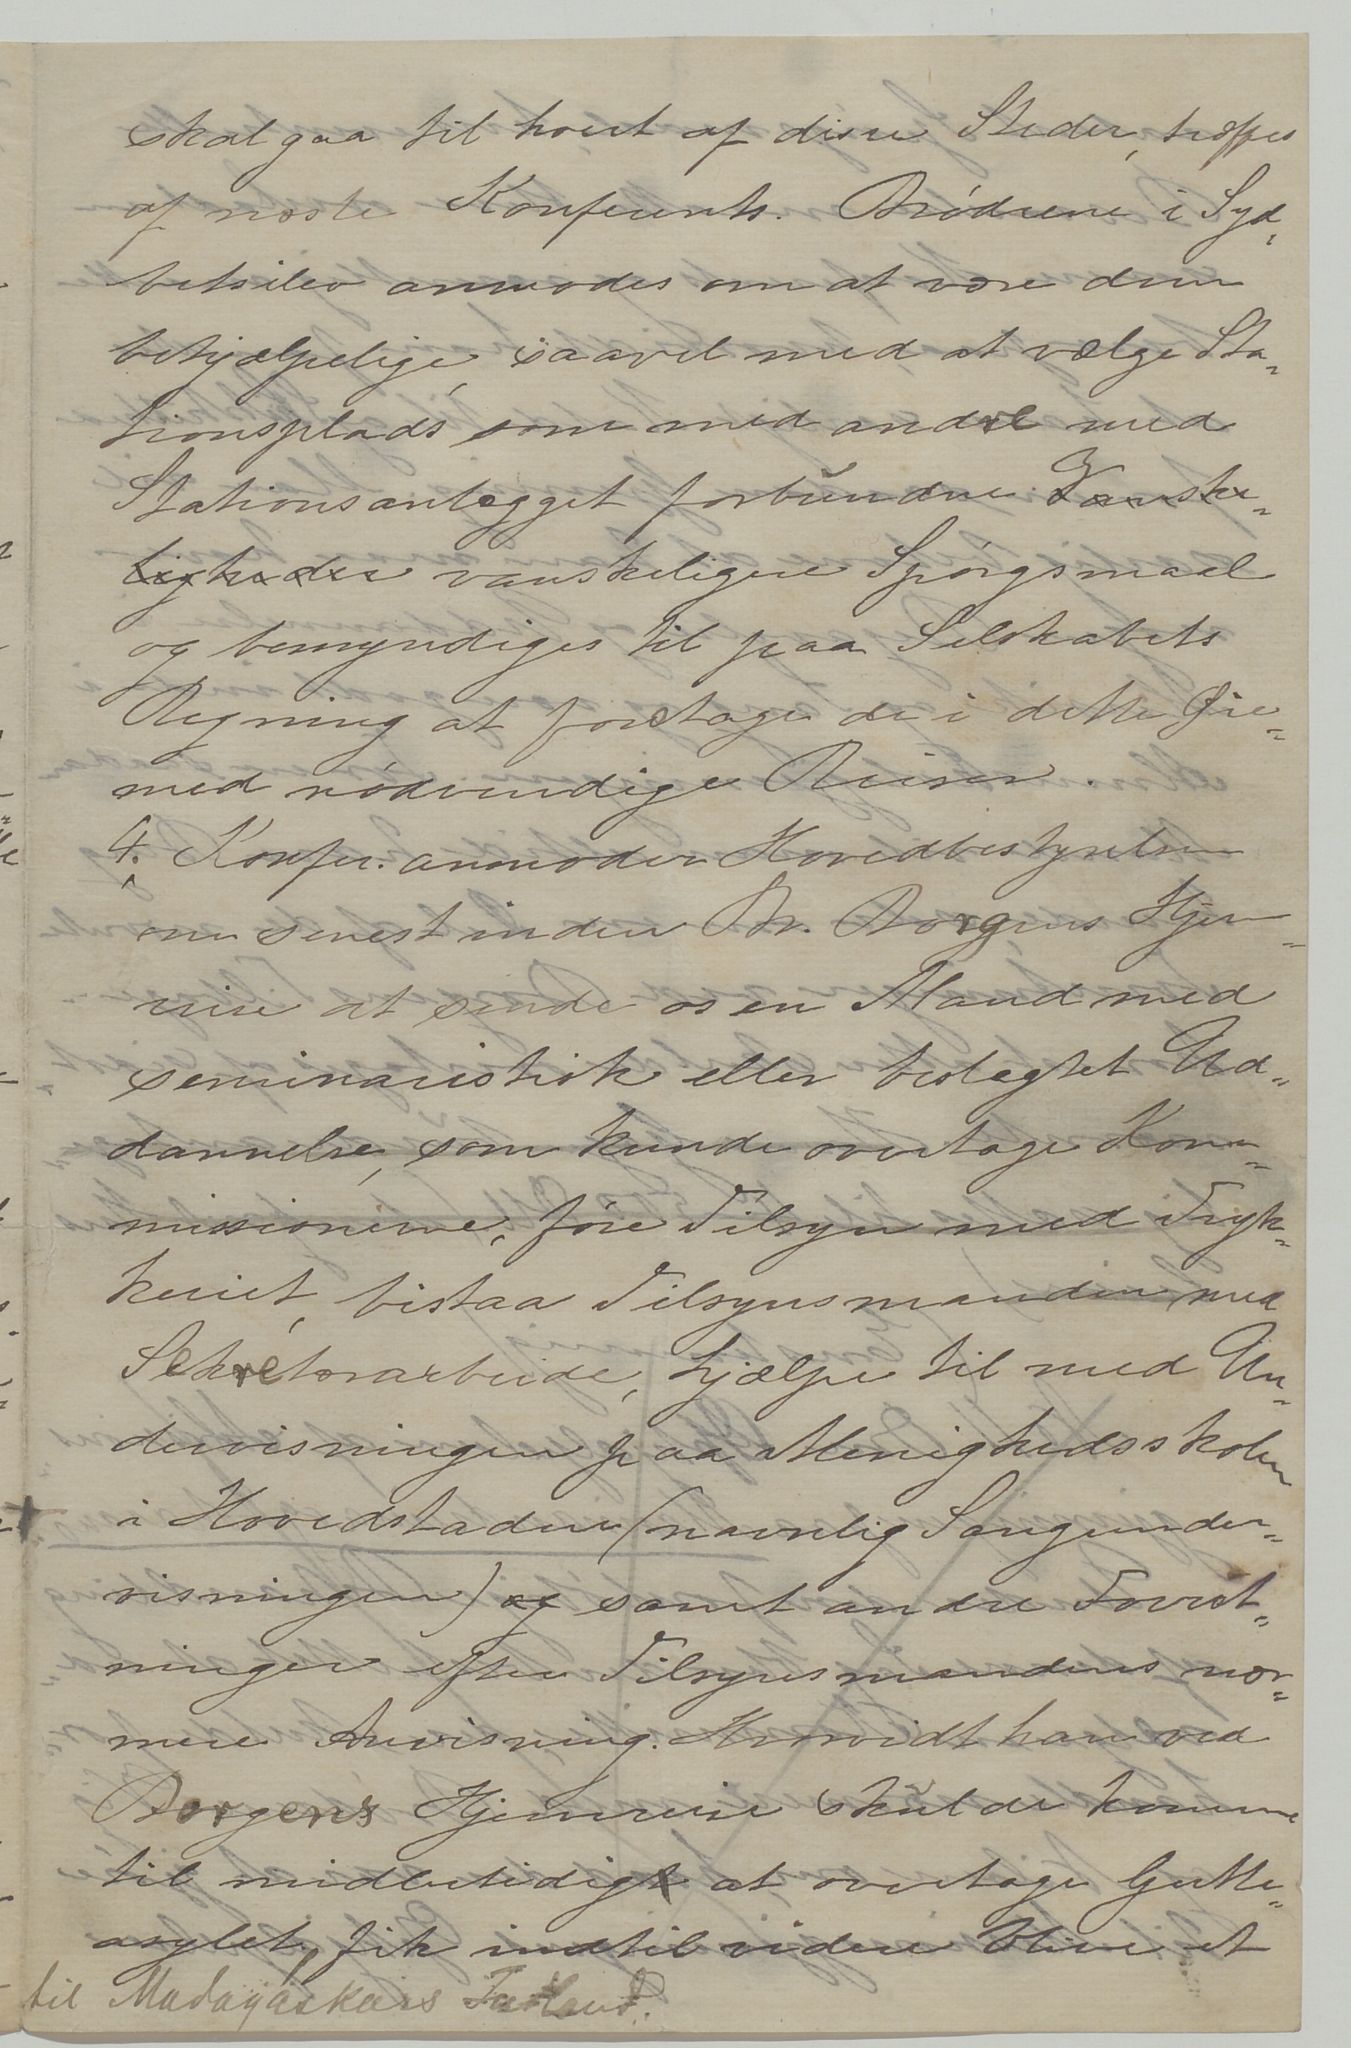 skal gaa til hvert af disse Steder, træffes
af næste Konferents. Brødrene i Syd-
betsileo anmodes om at være dem
behjælpelige, saavel med at vælge Sta-
tionsplads som med andre med
Stationsanlægget forbundne Vanske-
ligheder vanskeligere Spørgsmaal
og bemyndiges til paa Selskabets
Regning at foretage de i dette Øie-
med nødvendige Reiser.
4. Konfer. anmoder Hovedbestyrelsen
om senest inden Br. Borgens Hjem-
reise at sende os en Mand med
seminaristisk eller beslægtet Ud-
dannelse, som kunde overtage Kom-
missionerne, føre Tilsyn med Tryk-
keriet, bistaa Tilsynsmanden med
Sekretærarbeide, hjælpe til med Un-
dervisningen paa Menighedsskolen
i Hovedstaden (navnlig Sangunder-
visningen) og samt andre Forret-
ninger efter Tilsynsmandens nær-
mere Anvisning. Hvorvidt han ved
Borgens Hjemreise skulde komme
til midlertidigt at overtage Gutte-
asylet, fik indtil videre blive et
til Madagaskars